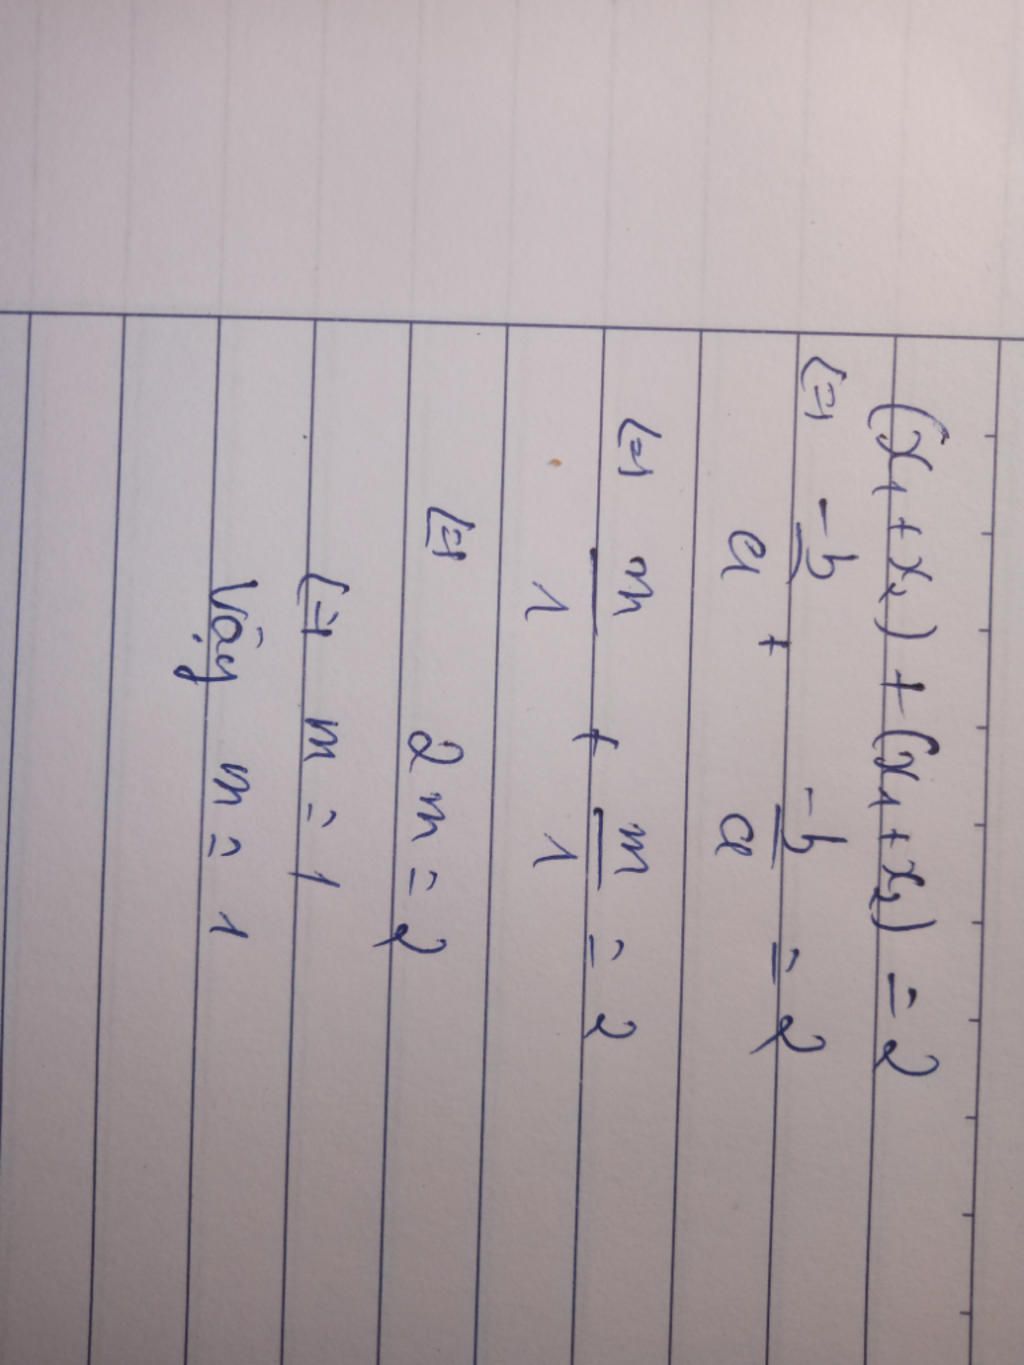 (x₁ + x₂) + (x₁ + x₂) = 2
⇔ -b/a + -b/a = 2
⇔ m/1 + m/1 = 2
⇔ 2m = 2
⇔ m = 1
Vậy m = 1